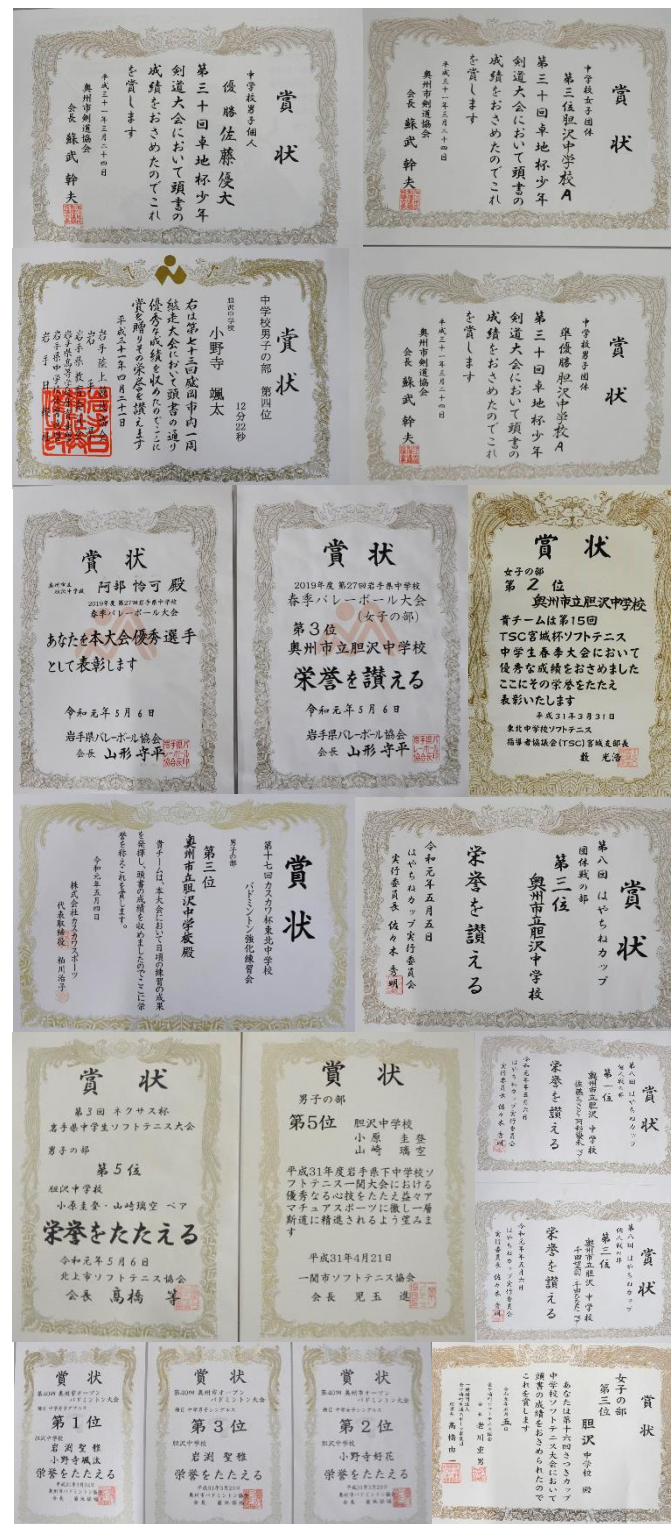 賞状
中学校男子個人
優勝 佐藤優大
第三十回卓地杯少年
剣道大会において頭書の
成績をおさめたのでこれ
を賞します
平成三十一年三月二十四日
奥州市剣道協会
会長 蘇武幹夫
賞状
中学校女子団体
第三位 胆沢中学校A
第三十回卓地杯少年
剣道大会において頭書の
成績をおさめたのでこれ
を賞します
平成三十一年三月二十四日
奥州市剣道協会
会長 蘇武幹夫
賞状
中学校男子の部 第四位
12分22秒
胆沢中学校
小野寺 颯太
右は第七十三回盛岡市内一周
継走大会において頭書の通り
優秀な成績を収めたのでここに
賞を贈りその栄誉を讃えます
平成三十一年四月二十一日
賞状
中学校男子団体
準優勝 胆沢中学校A
第三十回卓地杯少年
剣道大会において頭書の
成績をおさめたのでこれ
を賞します
平成三十一年三月二十四日
奥州市剣道協会
会長 蘇武幹夫
賞状
奥州市立
胆沢中学校 阿部 怜可 殿
2019年度 第27回岩手県中学校
春季バレーボール大会
あなたを本大会優秀選手
として表彰します
令和元年5月6日
岩手県バレーボール協会
会長 山形守平
賞状
2019年度 第27回岩手県中学校
春季バレーボール大会
(女子の部)
第3位
奥州市立胆沢中学校
栄誉を讃える
令和元年5月6日
岩手県バレーボール協会
会長 山形守平
賞状
女子の部
第2位
奥州市立胆沢中学校
貴チームは第15回
TSC宮城杯ソフトテニス
中学生春季大会において
優秀な成績をおさめました
ここにその栄誉をたたえ
表彰いたします
平成31年3月31日
東北中学校ソフトテニス
指導者協議会(TSC)宮城支部長
賞状
第十七回カスカワ杯東北中学校
バドミントン強化練習会
男子の部
第三位
奥州市立胆沢中学校殿
貴チームは、本大会において日頃の練習の成果
を発揮し、頭書の成績を収めましたのでここに栄
誉を称えこれを賞します。
令和元年五月四日
株式会社カスカワスポーツ
代表取締役 粕川治子
賞状
第八回 はやちねカップ
団体戦の部
第三位
奥州市立胆沢中学校
栄誉を讃える
令和元年五月五日
はやちねカップ実行委員会
実行委員長 佐々木秀明
賞状
第3回 ネクサス杯
岩手県中学生ソフトテニス大会
男子の部
第5位
胆沢中学校
小原圭登・山崎璃空 ペア
栄誉をたたえる
令和元年5月6日
北上市ソフトテニス協会
会長 高橋 等
賞状
男子の部
第5位 胆沢中学校
小原 圭登
山崎 璃空
平成31年度岩手県下中学校ソ
フトテニス一関大会における
優秀なる心技をたたえ益々ア
マチュアスポーツに徹し一層
斯道に精進されるよう望みま
す
平成31年4月21日
一関市ソフトテニス協会
会長 児玉 進
賞状
第八回 はやちねカップ
個人戦の部
第一位
奥州市立胆沢中学校
栄誉を讃える
令和元年五月六日
はやちねカップ実行委員会
賞状
第八回 はやちねカップ
個人戦の部
第三位
奥州市立胆沢中学校
栄誉を讃える
令和元年五月六日
はやちねカップ実行委員会
賞状
第40回 奥州市オープン
バドミントン大会
第1位
胆沢中学校
岩渕 聖雅
小野寺颯汰
栄誉をたたえる
賞状
第40回 奥州市オープン
バドミントン大会
第3位
胆沢中学校
岩渕 聖雅
栄誉をたたえる
賞状
第40回 奥州市オープン
バドミントン大会
第2位
胆沢中学校
小野寺好花
栄誉をたたえる
賞状
女子の部
第三位
胆沢中学校 殿
あなたは第十六回さつきカップ
中学校ソフトテニス大会において
頭書の成績をおさめられたので
これを賞します